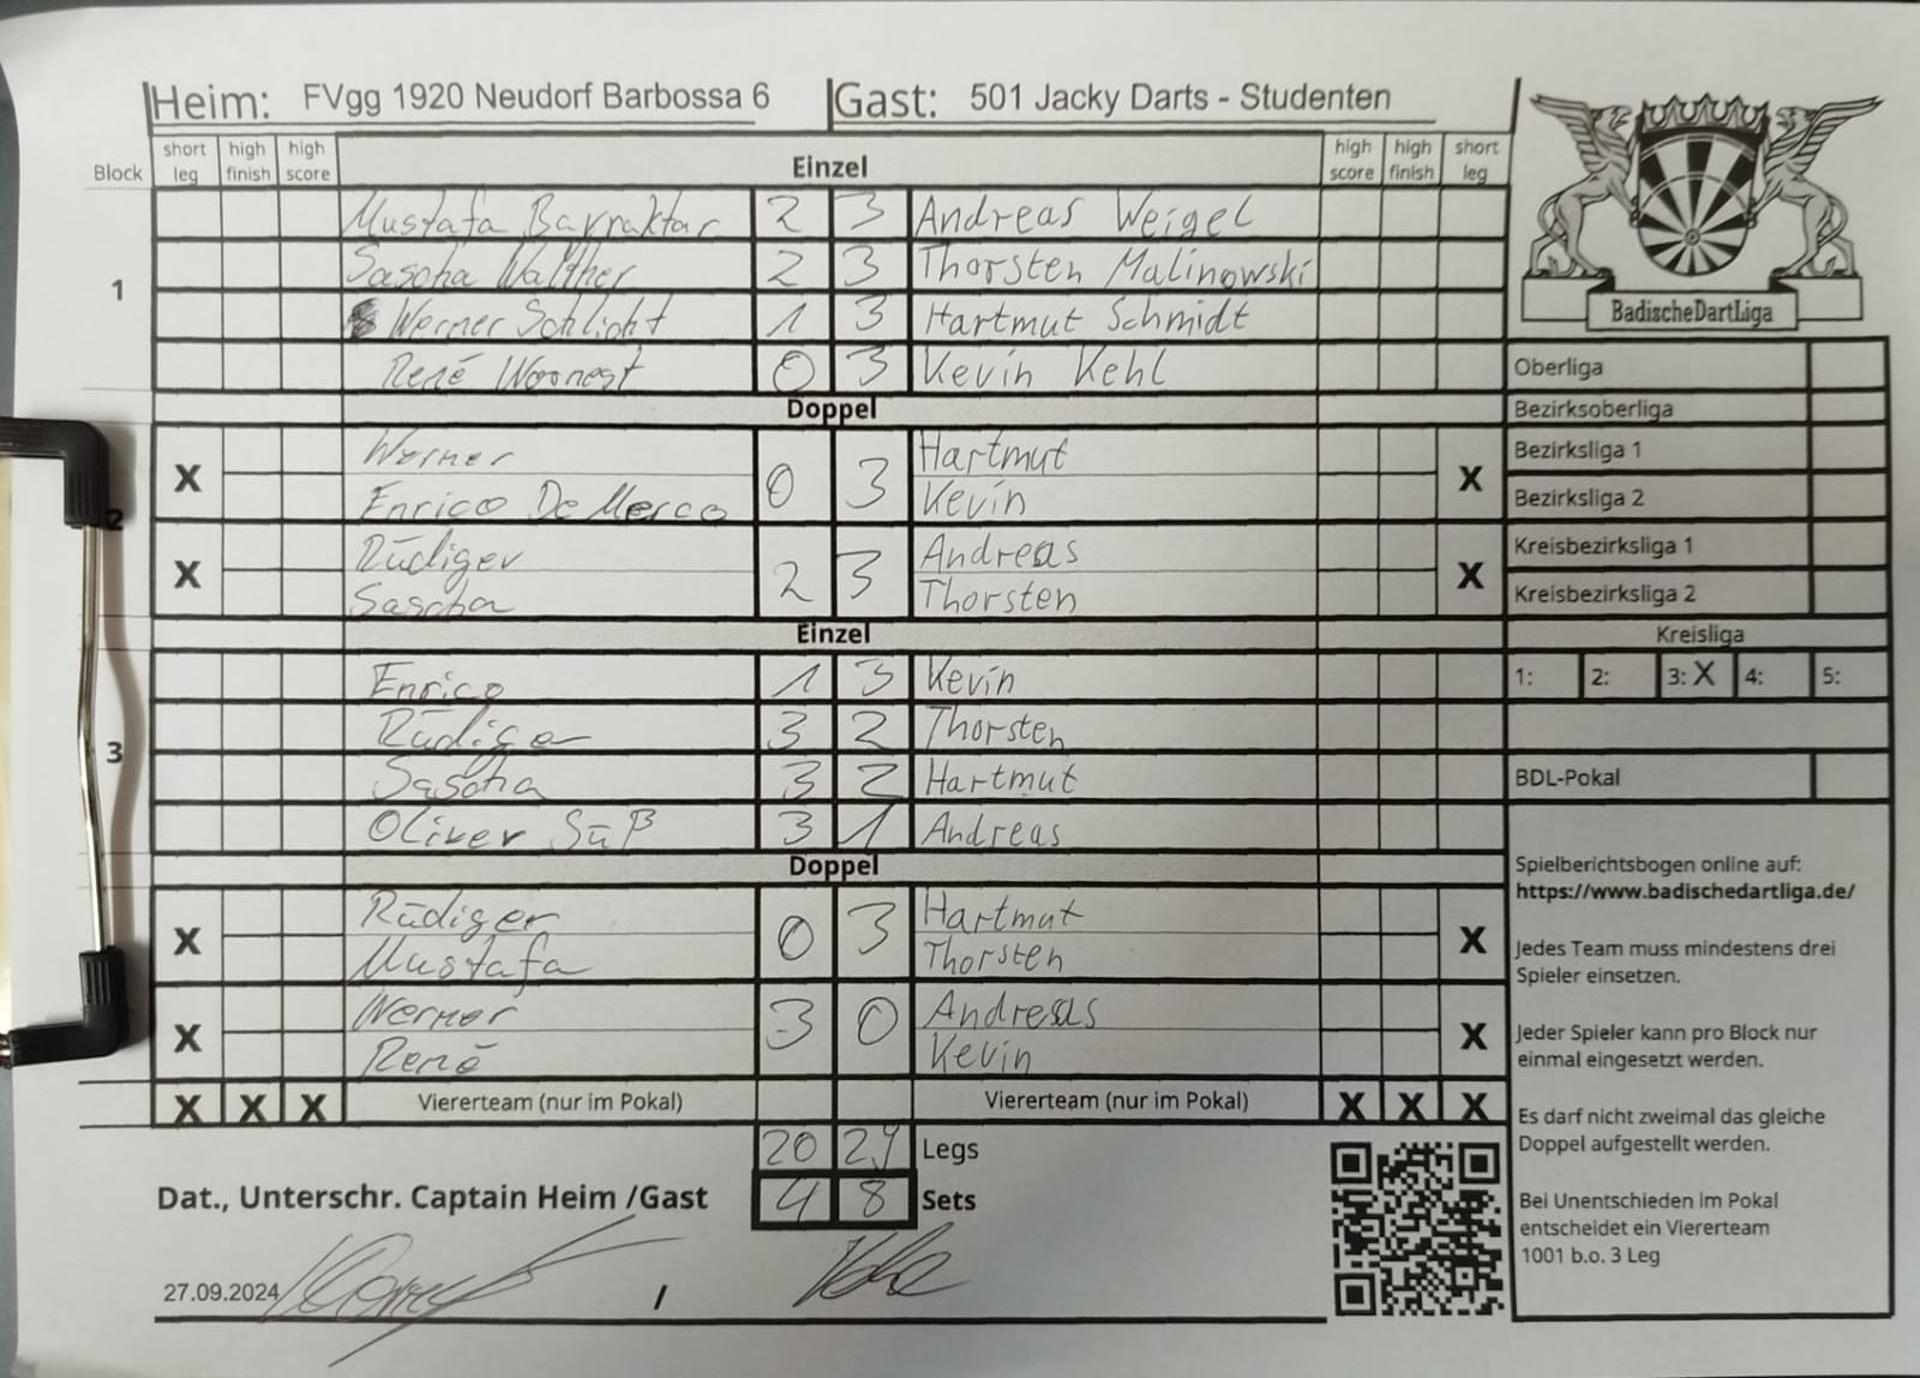 Heim: FVgg 1920 Neudorf Barbossa 6 Gast: 501 Jacky Darts - Studenten
Block short leg high finish high score Einzel high score high finish short leg
1
Mustafa Bayraktar 2 3 Andreas Weigel
Sascha Walther 2 3 Thorsten Malinowski
Werner Schlicht 1 3 Hartmut Schmidt
René 0 3 Kevin Kehl
Doppel
2
Werner Hartmut
X 0 3 X
Enrico De Merco Kevin
Rüdiger Andreas
X 2 3 X
Sascha Thorsten
Einzel
3
Enrico 1 3 Kevin
Rüdiger 3 2 Thorsten
Sascha 3 2 Hartmut
Oliver Süß 3 1 Andreas
Doppel
Rüdiger Hartmut
X 0 3 X
Mustafa Thorsten
Werner Andreas
X 3 0 X
René Kevin
X X X Viererteam (nur im Pokal) Viererteam (nur im Pokal) X X X
20 29 Legs
4 8 Sets
Dat., Unterschr. Captain Heim /Gast
27.09.2024 /
BadischeDartLiga
Oberliga
Bezirksoberliga
Bezirksliga 1
Bezirksliga 2
Kreisbezirksliga 1
Kreisbezirksliga 2
Kreisliga
1: 2: 3: X 4: 5:
BDL-Pokal
Spielberichtsbogen online auf:
https://www.badischedartliga.de/
Jedes Team muss mindestens drei
Spieler einsetzen.
Jeder Spieler kann pro Block nur
einmal eingesetzt werden.
Es darf nicht zweimal das gleiche
Doppel aufgestellt werden.
Bei Unentschieden im Pokal
entscheidet ein Viererteam
1001 b.o. 3 Leg